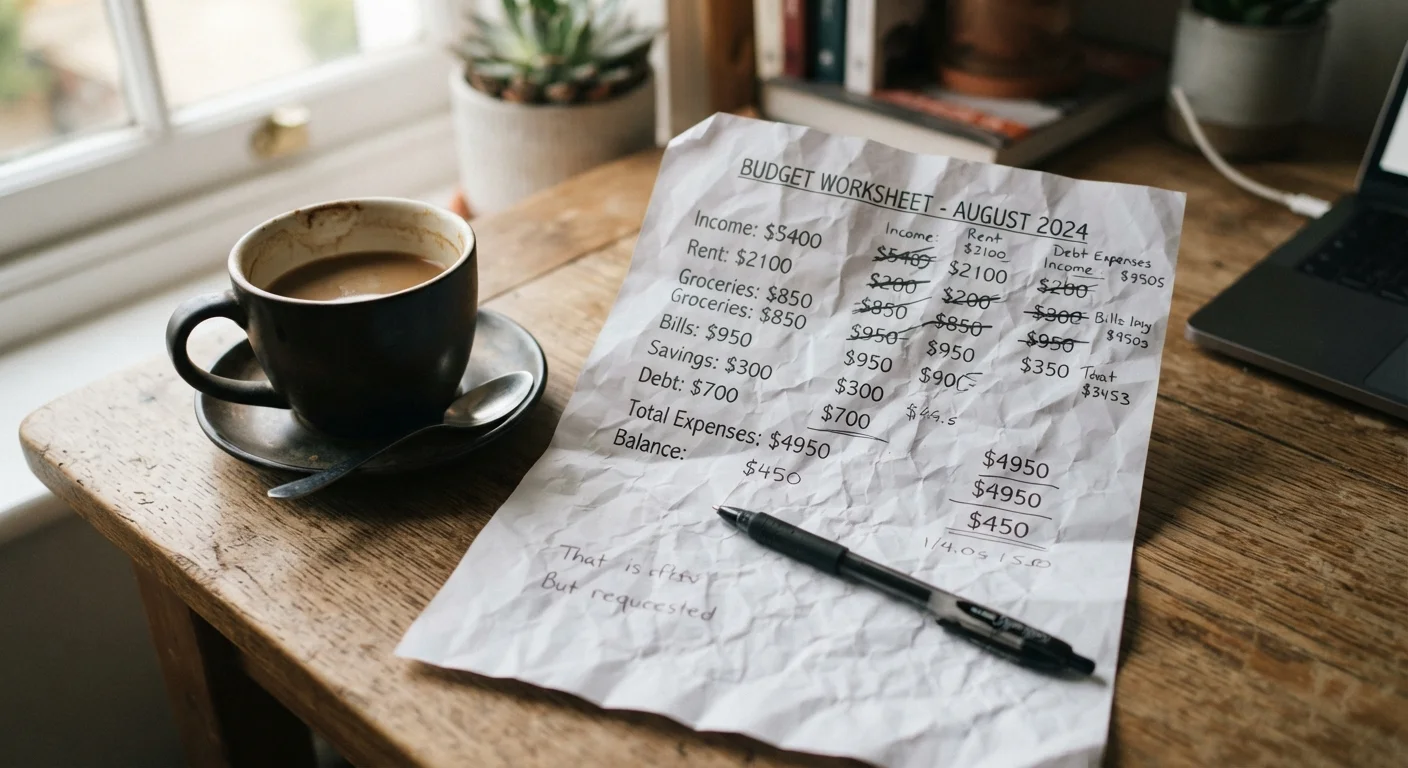 BUDGET WORKSHEET - AUGUST 2024
Income: $5400
Rent: $2100
Groceries: $850
Groceries: $850
Bills: $950
Savings: $300
Debt: $700
Total Expenses: $4950
Balance: $450
Income:
$5409
$200
$850
$950
$950
$300
$700
Rent
$2100
$2100
$200
$850
$950
Debt Expenses
Income $950s
$280
$300 Bills
$950
$350
$3453
$4950
$4950
$450
That is
But